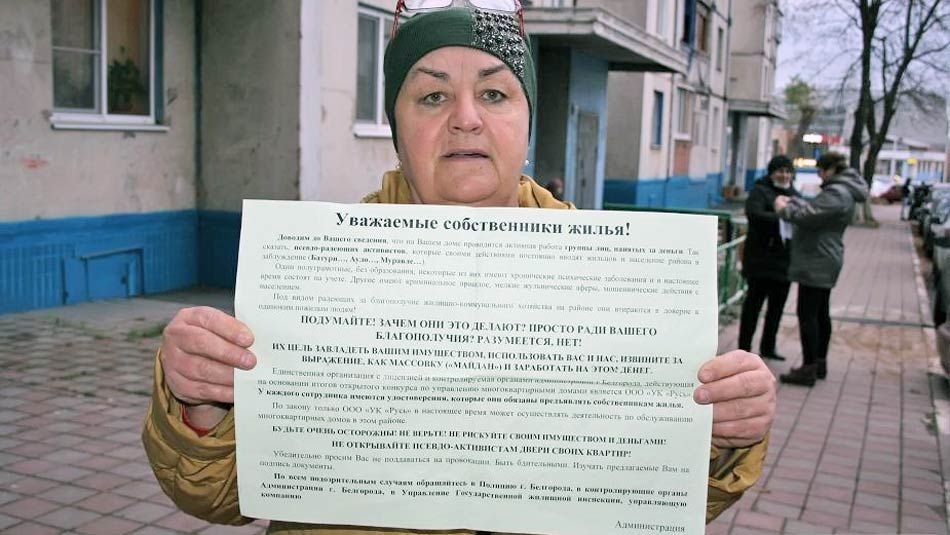 Уважаемые собственники жилья!
Доводим до Вашего сведения, что на Вашем доме проводится активная работа группы лиц, нанятых за деньги. Так
сказать, псевдо-радеющих активистов, которые своими действиями постоянно вводят жильцов и население района в
заблуждение (Батури…, Ауло…, Муравле…)
Одни полуграмотные, без образования, некоторые из них имеют хронические психические заболевания и в настоящее
время состоят на учете. Другие имеют криминальное прошлое, мелкие жульнические аферы, мошеннические действия с
населением.
Под видом радеющих за благополучие жилищно-коммунального хозяйства на районе они втираются в доверие к
одиноким пожилым людям!
ПОДУМАЙТЕ! ЗАЧЕМ ОНИ ЭТО ДЕЛАЮТ? ПРОСТО РАДИ ВАШЕГО
БЛАГОПОЛУЧИЯ? РАЗУМЕЕТСЯ, НЕТ!
ИХ ЦЕЛЬ ЗАВЛАДЕТЬ ВАШИМ ИМУЩЕСТВОМ, ИСПОЛЬЗОВАТЬ ВАС И НАС, ИЗВИНИТЕ ЗА
ВЫРАЖЕНИЕ, КАК МАССОВКУ («МАЙДАН») И ЗАРАБОТАТЬ НА ЭТОМ ДЕНЕГ.
Единственная организация с лицензией и контролируемая органами администрации г. Белгорода, действующая
на основании итогов открытого конкурса по управлению многоквартирными домами является ООО «УК «Русь».
У каждого сотрудника имеются удостоверения, которые они обязаны предъявлять собственникам жилья.
По закону только ООО «УК «Русь» в настоящее время может осуществлять деятельность по обслуживанию
многоквартирных домов в этом районе.
БУДЬТЕ ОЧЕНЬ ОСТОРОЖНЫ! НЕ ВЕРЬТЕ! НЕ РИСКУЙТЕ СВОИМ ИМУЩЕСТВОМ И ДЕНЬГАМИ!
НЕ ОТКРЫВАЙТЕ ПСЕВДО-АКТИВИСТАМ ДВЕРИ СВОИХ КВАРТИР!
Убедительно просим Вас не поддаваться на провокации. Быть бдительными. Изучать предлагаемые Вам на
подпись документы.
По всем подозрительным случаям обращайтесь в Полицию г. Белгорода, в контролирующие органы
Администрации г. Белгорода, в Управление Государственной жилищной инспекции, управляющую
компанию
Администрация